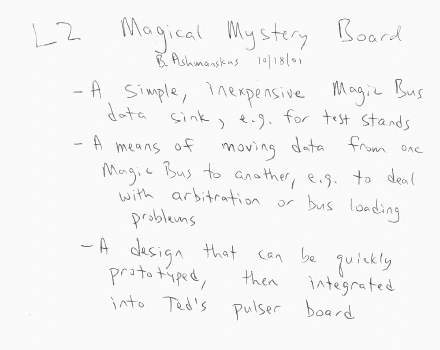 L2 Magical Mystery Board
B. Ashmanskas 10/18/01
- A simple, inexpensive Magic Bus
data sink, e.g. for test stands
- A means of moving data from one
Magic Bus to another, e.g. to deal
with arbitration or bus loading
problems
- A design that can be quickly
prototyped, then integrated
into Ted's pulser board